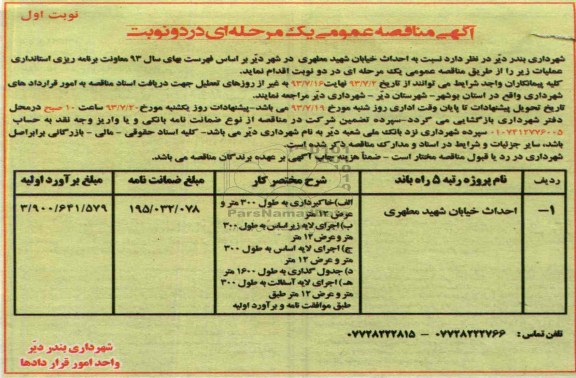 نوبت اول
آگهی مناقصه عمومی یک مرحله‌ای در دو نوبت
شهرداری بندر دیّر در نظر دارد نسبت به احداث خیابان شهید مطهری در شهر دیّر بر اساس فهرست بهای سال ۹۳ معاونت برنامه ریزی استانداری
عملیات زیر را از طریق مناقصه عمومی یک مرحله ای در دو نوبت اقدام نماید.
کلیه پیمانکاران واجد شرایط می توانند از تاریخ ۹۳/۷/۲ نهایت ۹۳/۷/۱۶ به غیر از روزهای تعطیل جهت دریافت اسناد مناقصه به امور قرارداد های
شهرداری واقع در استان بوشهر - شهرستان دیّر - شهرداری دیّر مراجعه نمایند.
تاریخ تحویل پیشنهادات تا پایان وقت اداری روز شنبه مورخ ۹۳/۷/۱۹ می باشد-پیشنهادات روز یکشنبه مورخ ۹۳/۷/۲۰ ساعت ۱۰ صبح درمحل
دفتر شهرداری بازگشایی می گردد-سپرده تضمین شرکت در مناقصه از نوع ضمانت نامه بانکی و یا واریز وجه نقد به حساب
۰۱۰۷۴۱۲۷۷۶۰۰۵ سپرده شهرداری نزد بانک ملی شعبه دیّر به نام شهرداری دیّر می باشد- کلیه اسناد حقوقی - مالی - بازرگانی برابراصل
باشد، سایر جزئیات و شرایط در اسناد و مدارک مناقصه ذکر شده است.
شهرداری در رد یا قبول مناقصه مختار است - ضمناً هزینه چاپ آگهی بر عهده برندگان مناقصه می باشد.
ردیف نام پروژه رتبه ۵ راه باند شرح مختصر کار مبلغ ضمانت نامه مبلغ برآورد اولیه
۱- احداث خیابان شهید مطهری ۱۹۵/۰۳۲/۰۷۸ ۳/۹۰۰/۶۴۱/۵۷۹
الف) خاکبرداری به طول ۳۰۰ متر و
عرض ۱۲ متر
ب) اجرای لایه زیراساس به طول ۳۰۰
متر و عرض ۱۲ متر
ج) اجرای لایه اساس به طول ۳۰۰
متر و عرض ۱۲ متر
د) جدول گذاری به طول ۱۶۰۰ متر
هـ) اجرای لایه آسفالت به طول ۳۰۰
متر و عرض ۱۲ متر طبق
طبق موافقت نامه و برآورد اولیه
تلفن تماس: ۰۷۷۲۸۲۲۲۷۶۶ - ۰۷۷۲۸۲۲۲۸۱۵
شهرداری بندر دیّر
واحد امور قرار دادها